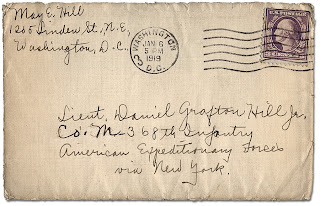 May E. Hill
1205 Linden St., N.E.,
Washington, D.C.
WASHINGTON
JAN 6
5 PM
1919
D.C.
U.S. POSTAGE
Lieut. Daniel Grafton Hill Jr.
Co. M - 368th Infantry
American Expeditionary Forces
via New York.